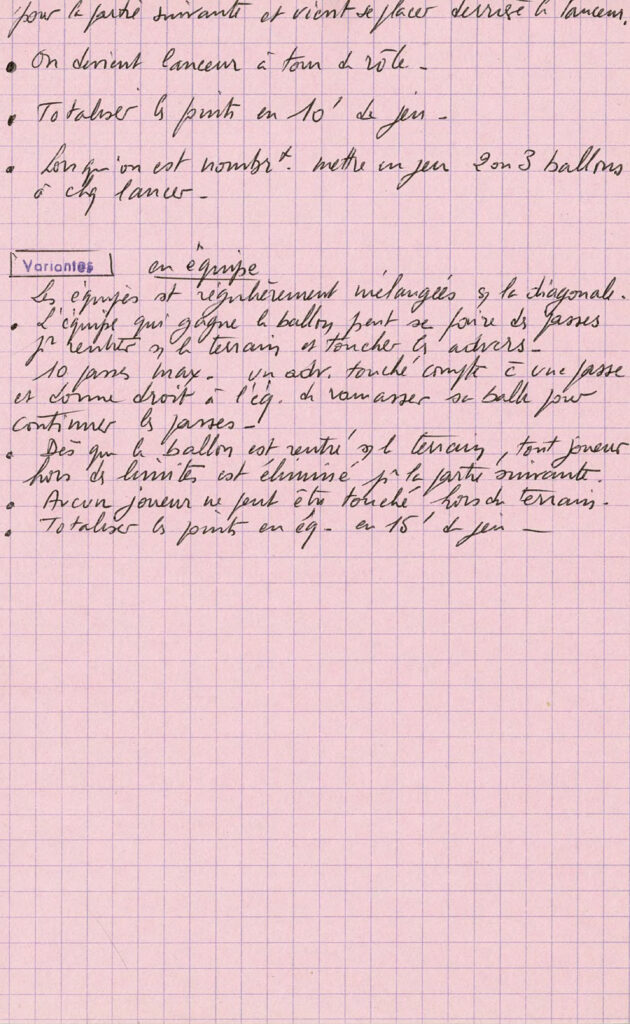 pour la partie suivante et vient se placer derrière le lanceur.
• On devient lanceur à tour de rôle -
• Totaliser les points en 10' de jeu -
• Lorsqu'on est nombrx. mettre en jeu 2 ou 3 ballons
à chq lancer -
Variantes en équipe
Les équipes st régulièrement mélangées s/ la diagonale.
• L'équipe qui gagne le ballon peut se faire des passes
pr rentrer s/ le terrain et toucher les advers -
10 passes max - un adv. touché compte c̄ une passe
et donne droit à l'éq. de ramasser sa balle pour
continuer les passes -
• Dès que le ballon est rentré s/ le terrain, tout joueur
hors des limites est éliminé pr la partie suivante.
• Aucun joueur ne peut être touché hors du terrain.
• Totaliser les points en éq - en 15' de jeu —